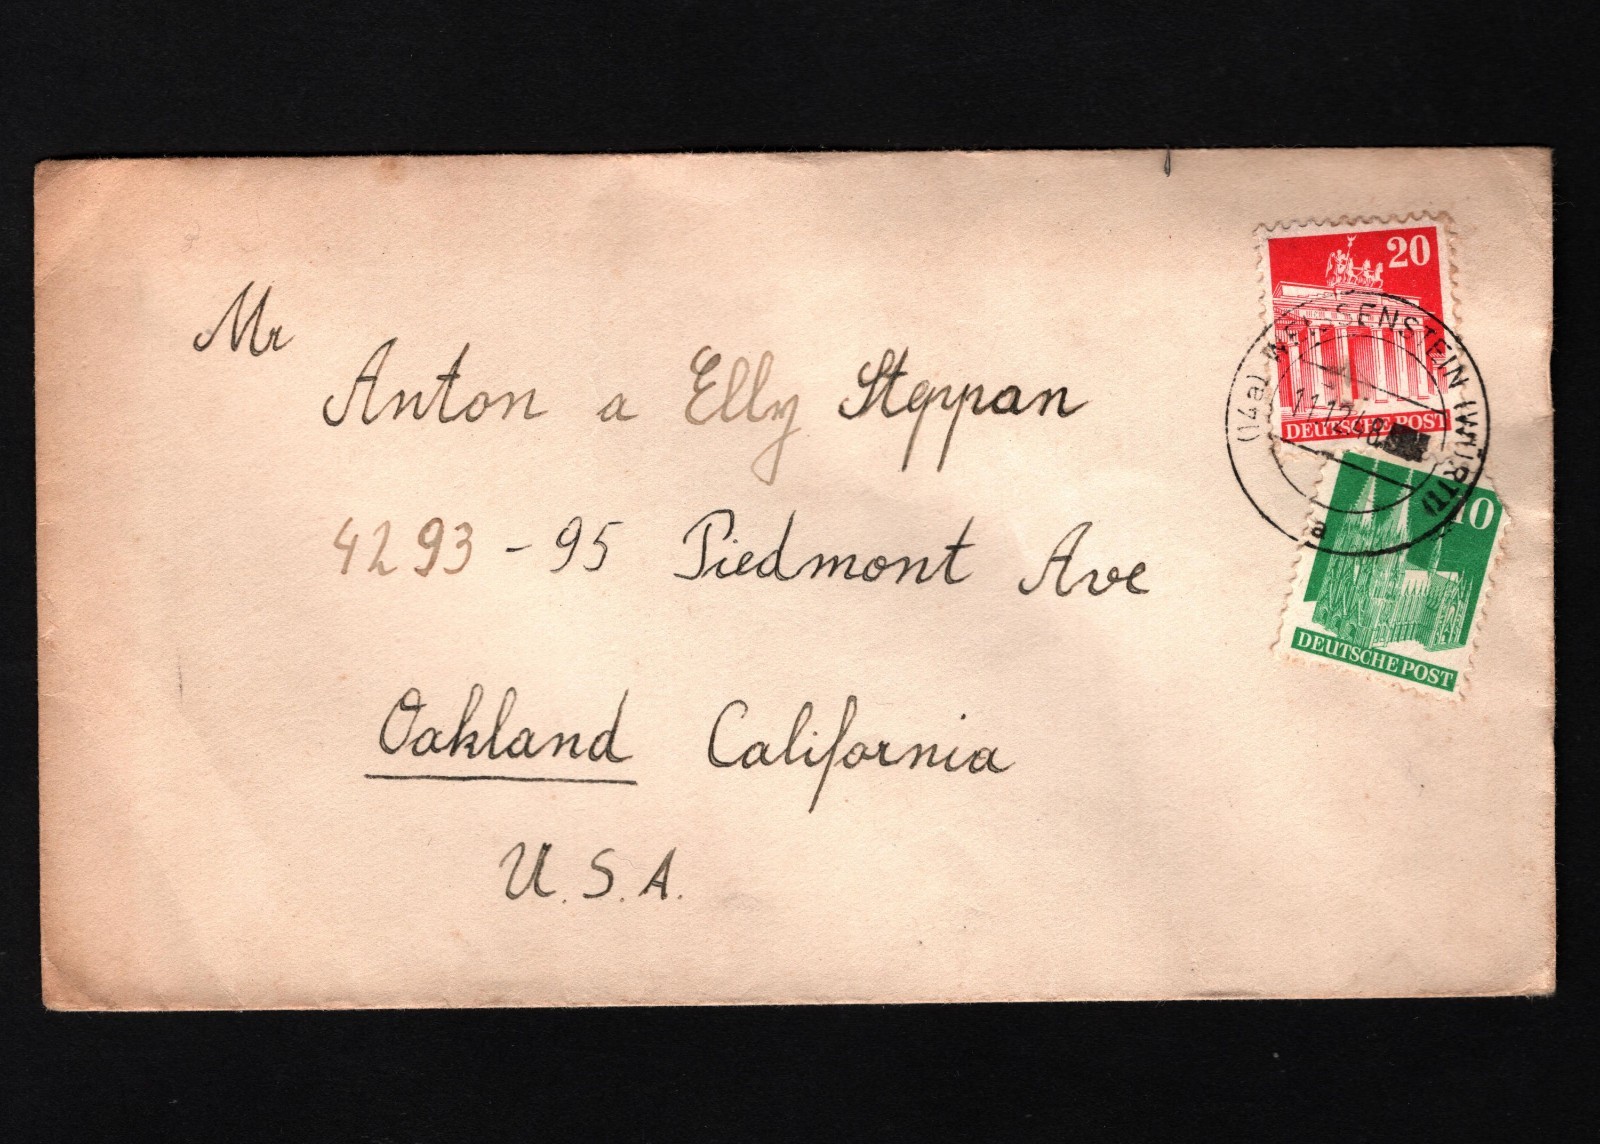 Mr
Anton a Elly Steppan
4293-95 Piedmont Ave
Oakland California
U.S.A.
20
DEUTSCHE POST
(14a) WEISSENSTEIN (WÜRTT)
11.12.48
a
10
DEUTSCHE POST